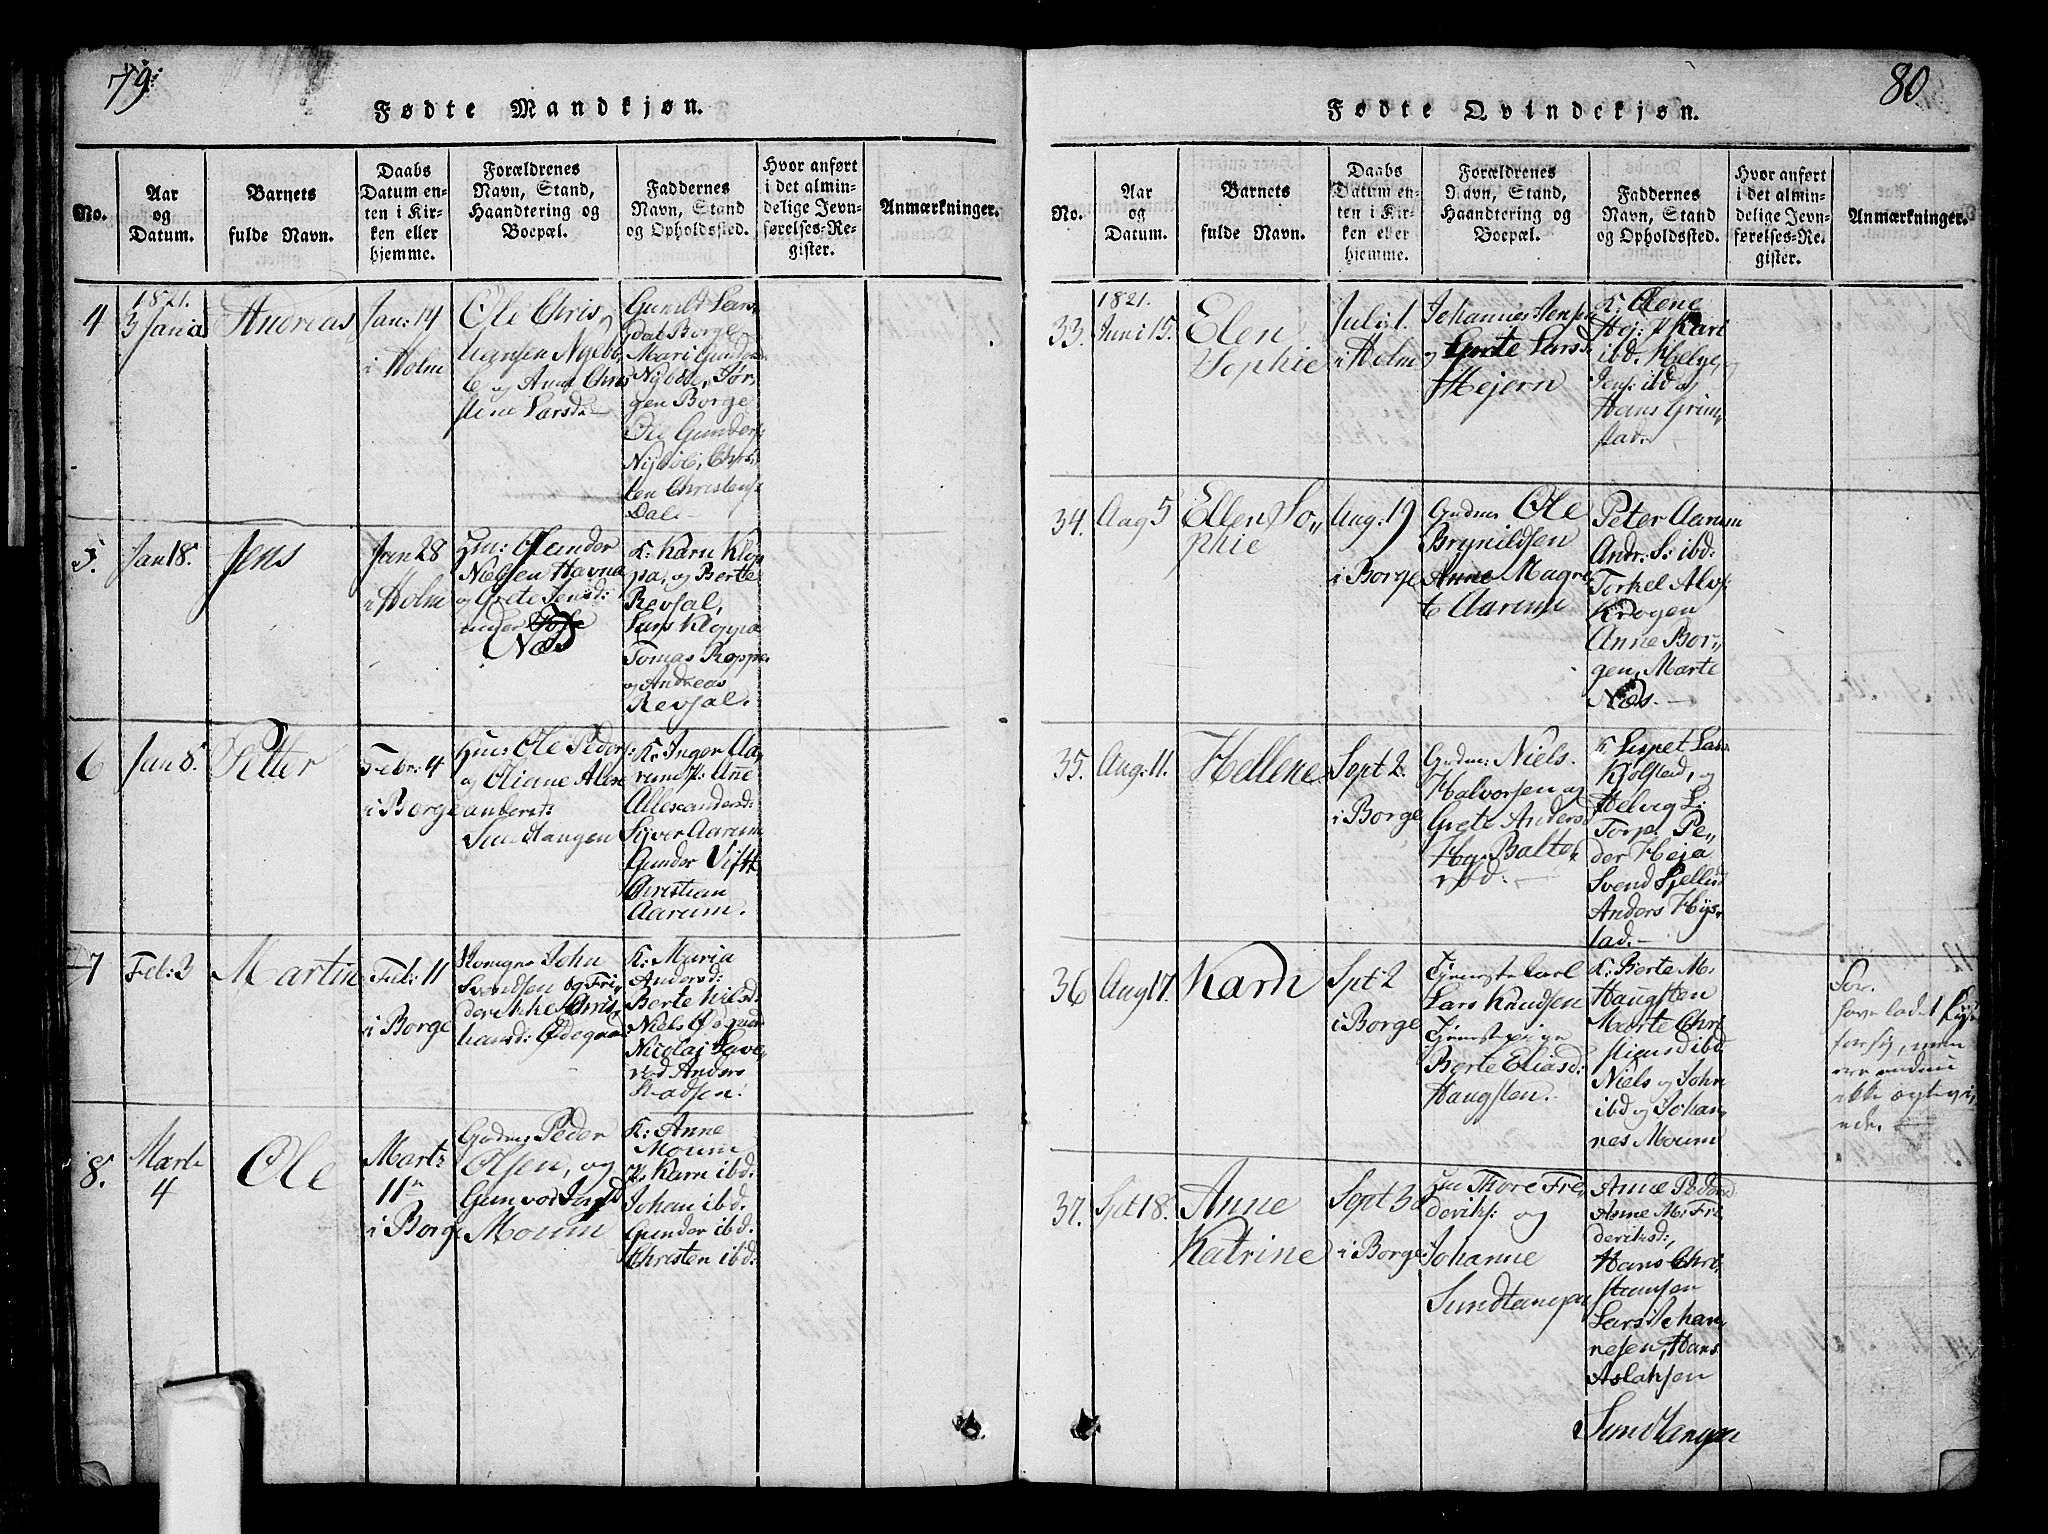 79.
Fødte Mandkjøn.
No.
Aar
og
Datum.
Barnets
fulde Navn.
Daabs
Datum en-
ten i Kir-
ken eller
hjemme.
Forældrenes
Navn, Stand,
Haandtering og
Boepæl.
Faddernes
Navn, Stand
og Opholdssted.
Hvor anført
i det almin-
delige Jevn-
førelses-Re-
gister.
Anmærkninger.
4
1821.
3 Janua
Andreas
Jan: 14
i Holm
Ole Chris
tiansen Nyeb
og Anne Chris
stine Larsd.
Dal Borge
Mari
Nijböle, Jør
gen Borge
Ole Gunders
Nijböle, Chris
ten Christens
Dal.
5.
Jan 18.
Jens
Jan 28
i Holm
Gunder
Nielsen Havna
og Grete Jensd:
under
Næs
K: Karn Klop
pa, og Berte
Revsal,
Lars Kloppa
Tomas Roppe
og Andreas
Revsal.
6
Jan 8.
Petter
Febr: 4
i Borge
Ole Peders
og Oliane Alex
Sundtangen
K: Inger Aa
rum, P: Anne
Allexandersd:
Syver Aarum
Gunder
Christian
Aarum.
7
Feb: 3
Martin
Feb: 11
i Borge
John
Svendsen og Fri
deri Chris
tiansd: Ødegaard
K: Maria
Andersd:
Berte Nielsd:
Niels Ødegaar
Nicolaj
Anders
8.
Marti
4
Ole
Marti
11
i Borge
Gudm: Peder
Olsen, og
Gunvor
Moum
K: Anne
Moum
P. Karn ibd:
Johan ibd.
Gunder ibd.
Christen ibd:
80
Fødte Qvindekjøn.
No.
Aar
og
Datum.
Barnets
fulde Navn.
Daabs
Datum en-
ten i Kir-
ken eller
hjemme.
Forældrenes
Navn, Stand,
Haandtering og
Boepæl.
Faddernes
Navn, Stand
og Opholdssted.
Hvor anført
i det almin-
delige Jevn-
førelses-Re-
gister.
Anmærkninger.
33.
1821.
Juni 15.
Elen
Sophie
Juli: 1.
i Holm
Johannes Jensen
og Grete Larsd.
Hejern
K: Olene
Hej: P Kari
ibd. Helge
Jens: ibd og
Hans Grim
stad.
34.
Aug 5
Ellen So,,
phie
Aug: 19
i Borge
Gudm: Ole
Brynildsen
Anne Magre
te Aarum
Peter Aarum
Andr: S: ibd:
Torkel Alvs
Krogen
Anne Bor,,
gen, Marte
Næs.
35.
Aug: 11.
Hellene
Sept 2.
i Borge
Gudm: Niels
Halvorsen og
Grete Anders
Hg. Balte
rød.
K. Lispet Lars
Kjølstad, og
Helvig L:
Torp. Pe,,
der Heja
Svend
Anders Hys
tad.
36
Aug 17.
Karn
Spt: 2
i Borge
Tjenestekarl
Lars Knudsen
Tjenestepige
Berte Eliasd:
Haugsten.
K: Berte M.
Haugsten
Marte Chri
ibd
Niels og John
ibd og Johan
nes Moum
For.
have ladet
for sig, men
ere endnu
ikke ægtevi
ede.
37.
Spt 18.
Anne
Katrine
Sept 30
i Borge
Thore Fre
deriks: og
Johanne
Sundtangen
Anne Pedersd
Anne M: Fre
deriksd:,
Hans Chri
stiansen
Lars Johan
nesen, Hans
Aslaksen
Sundtangen